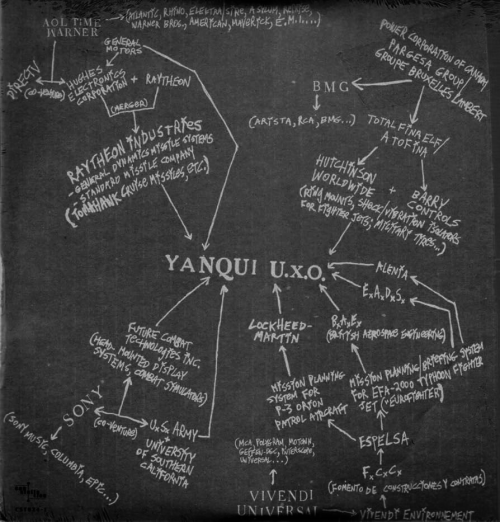 AOL TIME
WARNER
(ATLANTIC, RHINO, ELEKTRA, SIRE, ASYLUM,
WARNER BROS., AMERICAN, MAVERICK, E.M.I....)
GENERAL
MOTORS
DIRECTV
(CO-VENTURE)
HUGHES
ELECTRONICS
CORPORATION
+
RAYTHEON
(MERGER)
RAYTHEON INDUSTRIES
GENERAL DYNAMICS MISSILE SYSTEMS
STANDARD MISSILE COMPANY
(TOMAHAWK CRUISE MISSILES, ETC.)
POWER CORPORATION OF CANADA
PARGESA GROUP/
GROUPE BRUXELLES LAMBERT
BMG
(ARISTA, RCA, BMG...)
TOTALFINAELF/
ATOFINA
HUTCHINSON
WORLDWIDE
+
BARRY
CONTROLS
(RING MOUNTS, SHOCK/VIBRATION ISOLATORS
FOR FIGHTER JETS, MILITARY TIRES...)
YANQUI U.X.O.
ALENIA
E.A.D.S.
LOCKHEED-
MARTIN
B.A.E.
(BRITISH AEROSPACE ENGINEERING)
FUTURE COMBAT
TECHNOLOGIES INC.
(HEAD MOUNTED DISPLAY
SYSTEMS, COMBAT SIMULATORS)
SONY
(CO-VENTURE)
U.S. ARMY
+
UNIVERSITY
OF SOUTHERN
CALIFORNIA
(SONY MUSIC, COLUMBIA, EPIC...)
MISSION PLANNING
SYSTEM FOR
P-3 ORION
PATROL AIRCRAFT
MISSION PLANNING/BRIEFING SYSTEM
FOR EFA-2000 TYPHOON FIGHTER
JET ("EUROFIGHTER")
ESPELSA
F.C.C.
(FOMENTO DE CONSTRUCCIONES Y CONTRATAS)
(MCA, POLYGRAM, MOTOWN,
GEFFEN-DGC, INTERSCOPE,
UNIVERSAL...)
VIVENDI
UNIVERSAL
VIVENDI ENVIRONNEMENT